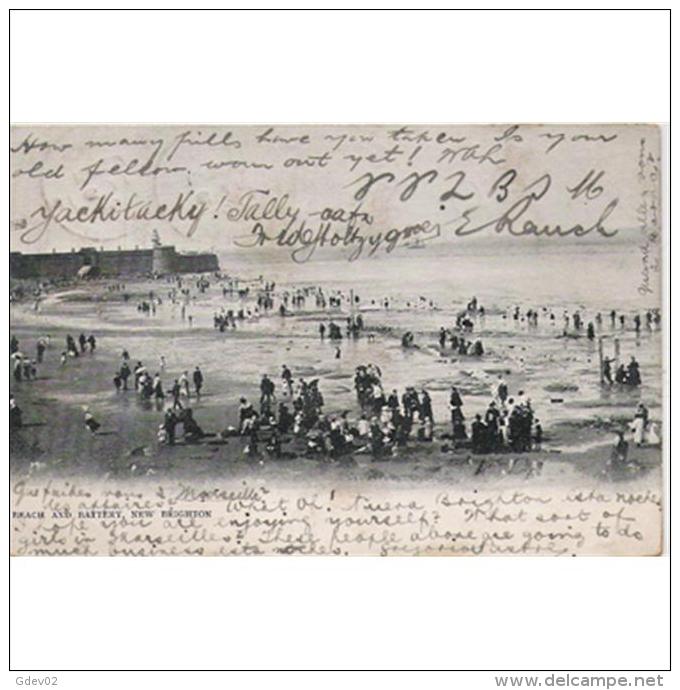 How many pills have you taken Is your
old fellow worn out yet!
Yackitacky! Tally
E Rauch
Que faites vous à Marseille?
les affaires. What Oh! Nueva Brighton esta noche
BEACH AND BATTERY, NEW BRIGHTON
I hope you are enjoying yourself? What sort of
girls in Marseilles? These people above are going to do
much business esta noche.
Gdev02
www.delcampe.net